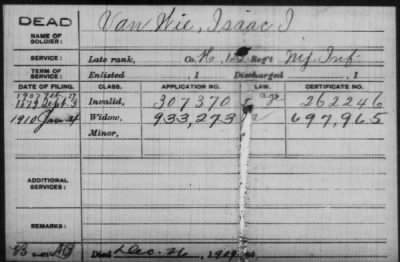 DEAD
Van Wie, Isaac I
NAME OF SOLDIER:
SERVICE: Late rank, Co. H, Reg't NJ. Inf.
TERM OF SERVICE: Enlisted , 1 Discharged , 1
DATE OF FILING. CLASS. APPLICATION NO. LAW. CERTIFICATE NO.
1907
1879 Sept. 3 Invalid, 307370 262246
1910 Jan 4 Widow, 933,273 697,965
Minor,
ADDITIONAL SERVICES:
REMARKS:
Died Dec. 26, 1909